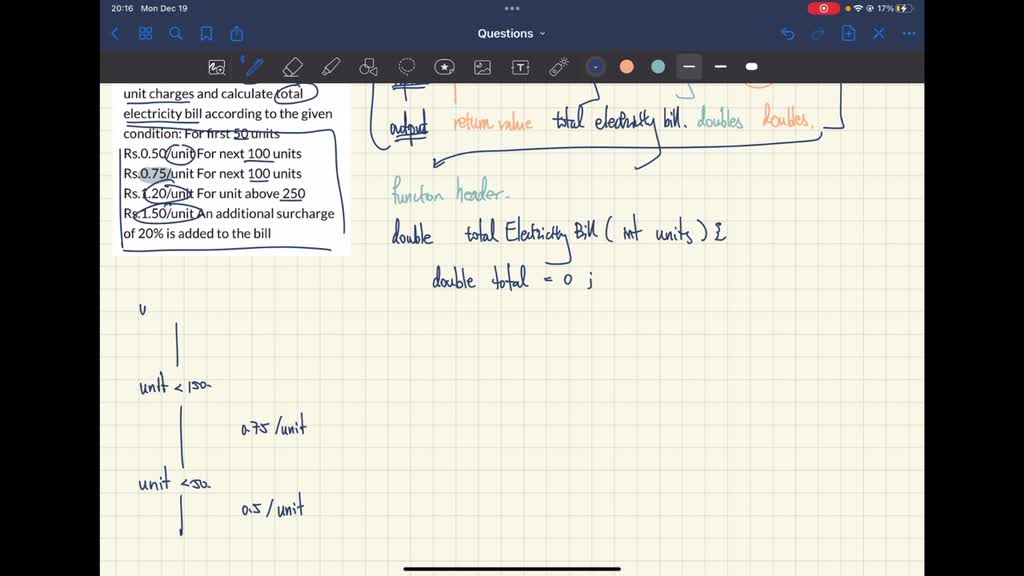 20:16 Mon Dec 19
17%
Questions
unit charges and calculate total
electricity bill according to the given
condition: For first 50 units
Rs.0.50/unit For next 100 units
Rs.0.75/unit For next 100 units
Rs.1.20/unit For unit above 250
Rs.1.50/unit An additional surcharge
of 20% is added to the bill
output return value total electricity bill. doubles doubles.
functon header.
double total Electricity Bill ( int units ) {
double total = 0 ;
u
unit < 150
0.75 /unit
unit < 50
0.5 / unit